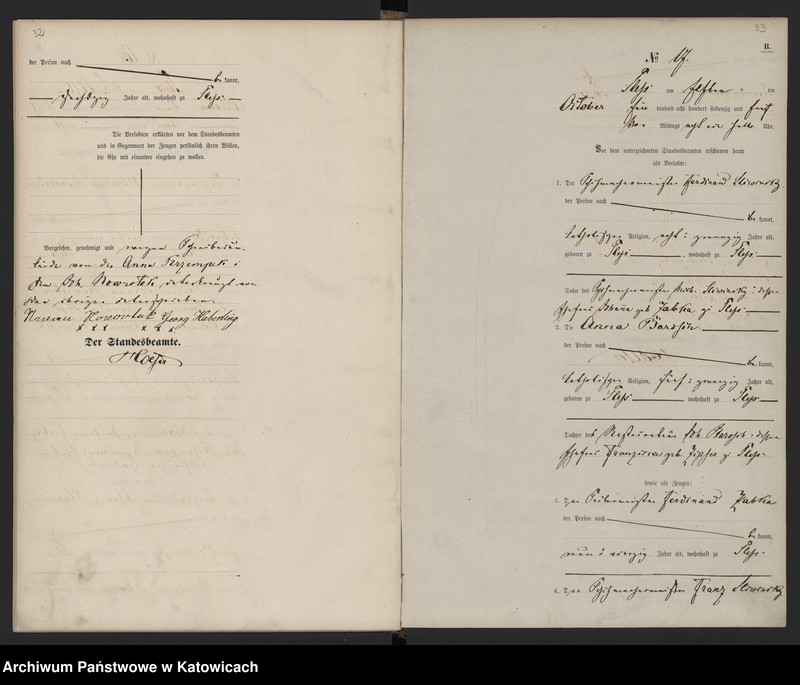 32
der Person nach
be kannt,
sechszig Jahre alt, wohnhaft zu Pless
Die Verlobten erklärten vor dem Standesbeamten
und in Gegenwart der Zeugen persönlich ihren Willen,
die Ehe mit einander eingehen zu wollen.
Vorgelesen, genehmigt und wegen Schreibensun-
kunde von der Anna Krzempek
dem Joh. Nowrotek unterkreuzt von
den übrigen unterschrieben
Nowrotek Georg Haberling
x x x x x x
Der Standesbeamte.
33
B.
№ 17.
Pless am elften ten
October Ein tausend acht hundert siebenzig und fünf
Vor Mittags acht ein halb Uhr.
Vor dem unterzeichneten Standesbeamten erschienen heute
als Verlobte:
1. Der Schuhmachermeister Ferdinand Sliwinsky
der Person nach
be kannt,
katholischer Religion, acht zwanzig Jahre alt,
geboren zu Pless wohnhaft zu Pless
Sohn des Schuhmachermeister Sliwinsky dessen
Ehefrau geb Zabka zu Pless
2. Die Anna Barosch
der Person nach
be kannt,
katholischer Religion, fünf zwanzig Jahre alt,
geboren zu Pless wohnhaft zu Pless
Tochter des Restaurateur Joh. Barosch dessen
Ehefrau Franziska geb. zu Pless.
sowie als Zeugen:
3. Der Ferdinand Zabka
der Person nach
be kannt,
neun vierzig Jahre alt, wohnhaft zu Pless.
4. Der Schuhmachermeister Franz Sliwinsky
Archiwum Państwowe w Katowicach